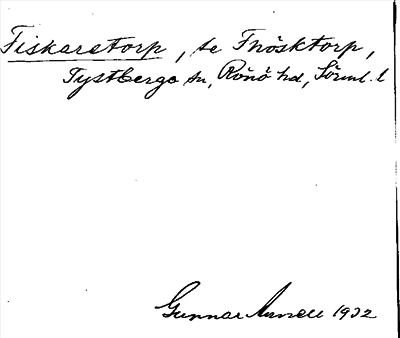 Fiskaretorp, se Fnösktorp,
Tystberga sn, Rönö hd, Sörml. l
Gunnar Annell 1932